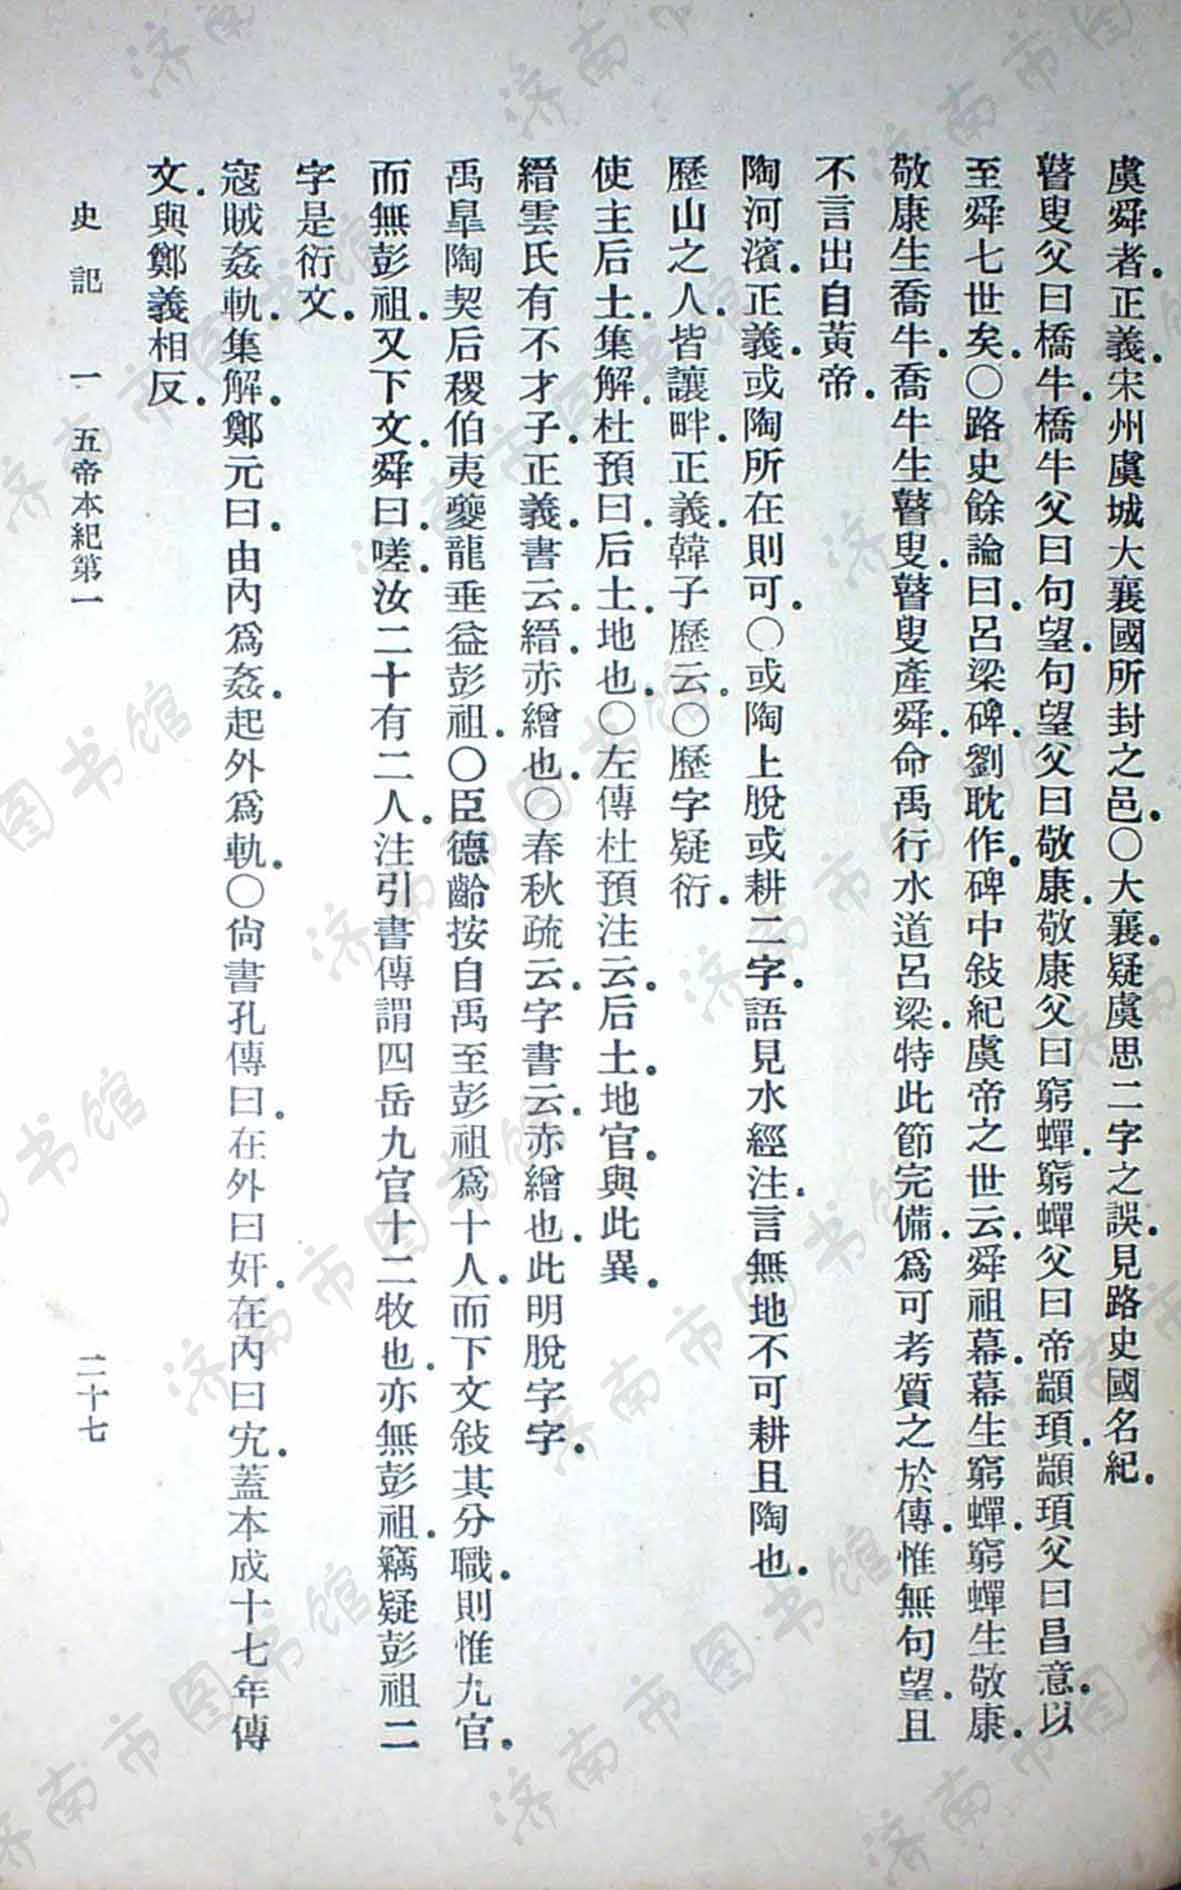 虞舜者．正義．宋州虞城大襄國所封之邑．○大襄．疑虞思二字之誤．見路史國名紀．
瞽叟父曰橋牛．橋牛父曰句望．句望父曰敬康．敬康父曰窮蟬．窮蟬父曰帝顓頊．顓頊父曰昌意．以
至舜七世矣．○路史餘論曰．呂梁碑．劉耽作．碑中敍紀虞帝之世云．舜祖幕．幕生窮蟬．窮蟬生敬康．
敬康生喬牛．喬牛生瞽叟．瞽叟產舜．命禹行水道呂梁．特此節完備．爲可考質之於傳．惟無句望．且
不言出自黃帝．
陶河濱．正義．或陶所在則可．○或陶上脫或耕二字．語見水經注．言無地不可耕且陶也．
歷山之人．皆讓畔．正義．韓子歷云．○歷字疑衍．
使主后土．集解．杜預曰．后土．地也．○左傳杜預注云．后土．地官．與此異．
縉雲氏有不才子．正義．書云．縉．亦繒也．○春秋疏云．字書云．亦繒也．此明脫字字．
禹皐陶契后稷伯夷夔龍垂益彭祖．○臣德齡按自禹至彭祖爲十人．而下文敍其分職．則惟九官．
而無彭祖．又下文．舜曰．嗟．汝二十有二人．注引書傳謂四岳九官十二牧也．亦無彭祖．竊疑彭祖二
字是衍文．
寇賊姦軌．集解．鄭元曰．由內爲姦．起外爲軌．○尙書孔傳曰．在外曰奸．在內曰宄．蓋本成十七年傳
文．與鄭義相反．
史記 一 五帝本紀第一 二十七
济南市图书馆